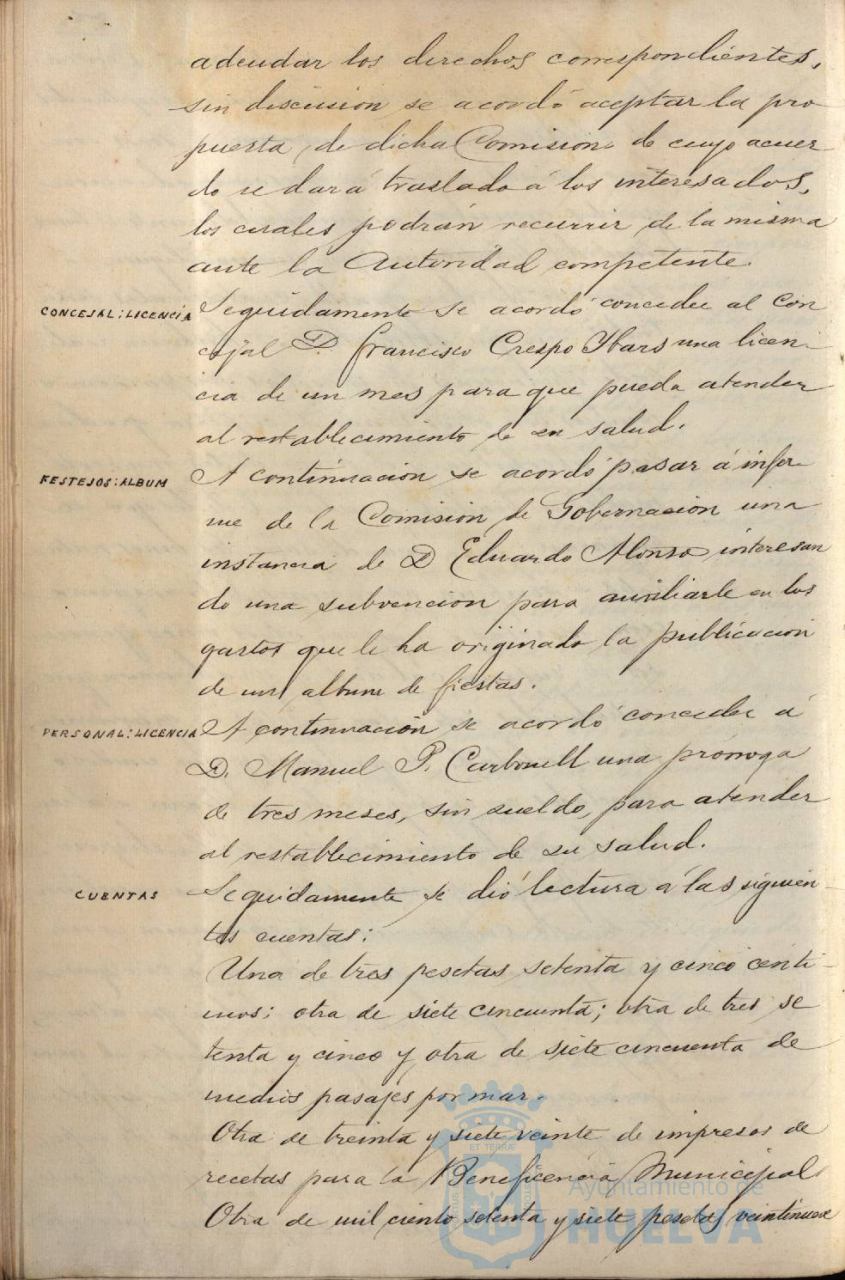 adeudar los derechos correspondientes,
sin discusion se acordó aceptar la pro
puesta, de dicha Comision de cuyo acuer
do se dará traslado á los interesados,
los cuales podrán recurrir de la misma
ante la Autoridad competente.
CONCEJAL: LICENCIA Seguidamente se acordó conceder al Con
cejal D. Francisco Crespo Ybars una licen-
cia de un mes para que pueda atender
al restablecimiento de su salud.
FESTEJOS: ALBUM A continuacion se acordó pasar á infor-
me de la Comision de Gobernacion una
instancia de D Eduardo Alonso interesan
do una subvencion para auxiliarle en los
gastos que le ha originado la publicacion
de un album de fiestas.
PERSONAL: LICENCIA A continuación se acordó conceder á
D. Manuel P. Carbonell una prórroga
de tres meses, sin sueldo, para atender
al restablecimiento de su salud.
CUENTAS Seguidamente se dió lectura á las siguien-
tes cuentas:
Una de tres pesetas setenta y cinco centi-
mos; otra de siete cincuenta; otra de tres se
tenta y cinco y otra de siete cincuenta de
medios pasajes por mar.
Otra de treinta y siete veinte de impresos de
recetas para la Beneficencia Municipal
Otra de mil ciento setenta y siete pesetas veintinueve
Ayuntamiento de
HUELVA